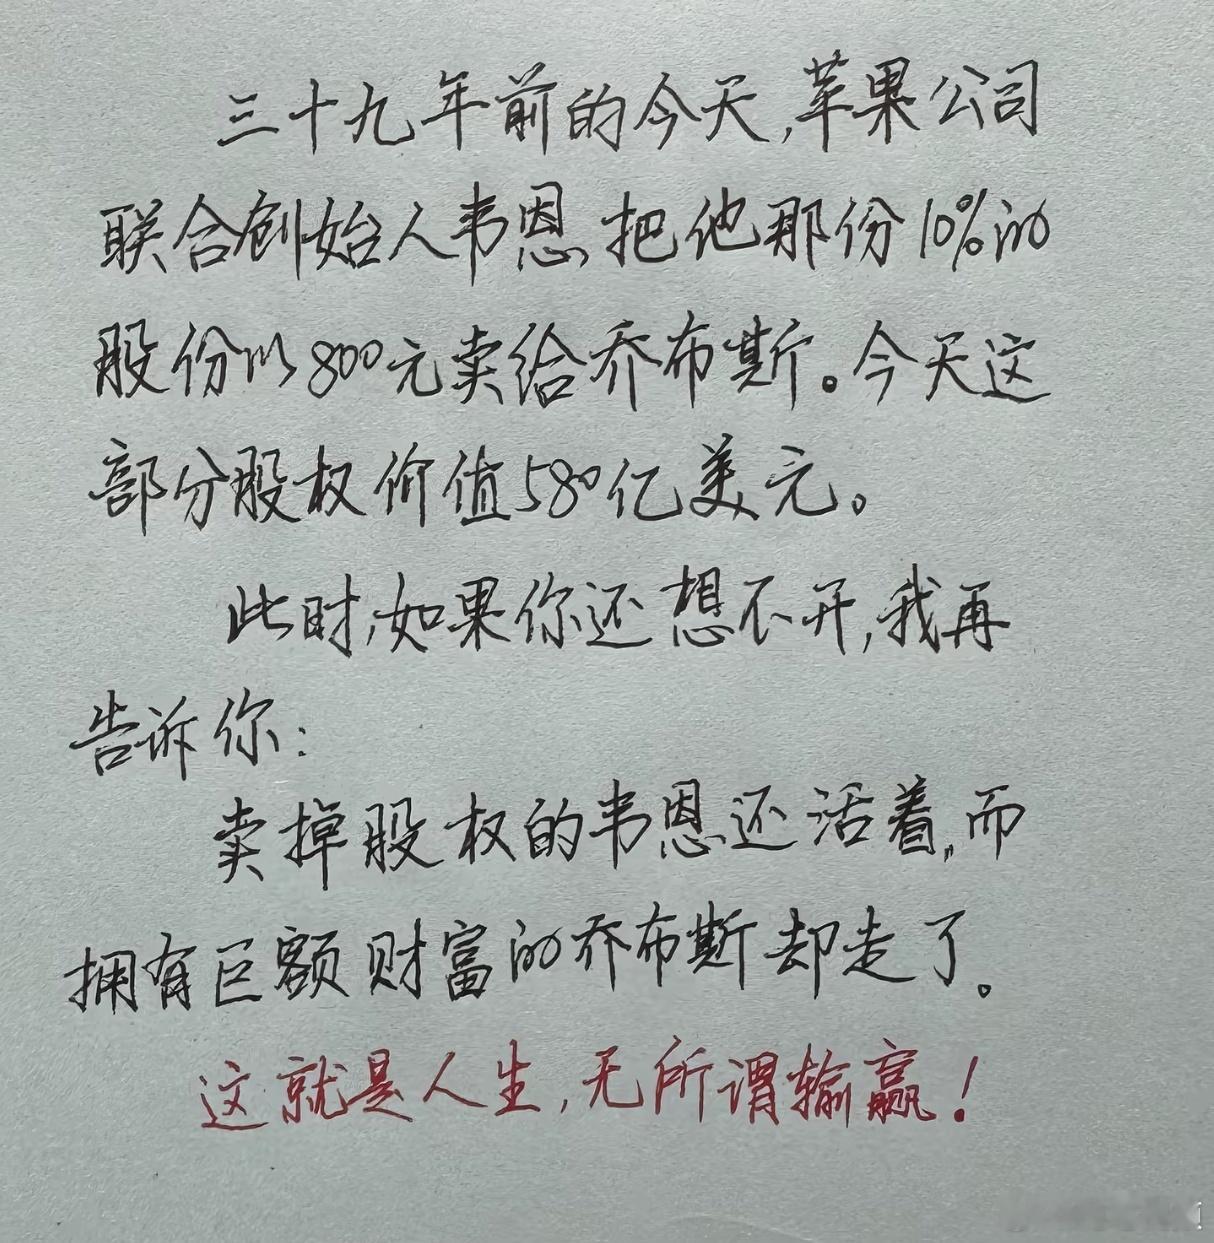 三十九年前的今天,苹果公司
联合创始人韦恩,把他那份10%的
股份以800元卖给乔布斯。今天这
部分股权价值580亿美元。
此时,如果你还想不开,我再
告诉你:
卖掉股权的韦恩还活着,而
拥有巨额财富的乔布斯却走了。
这就是人生,无所谓输赢!